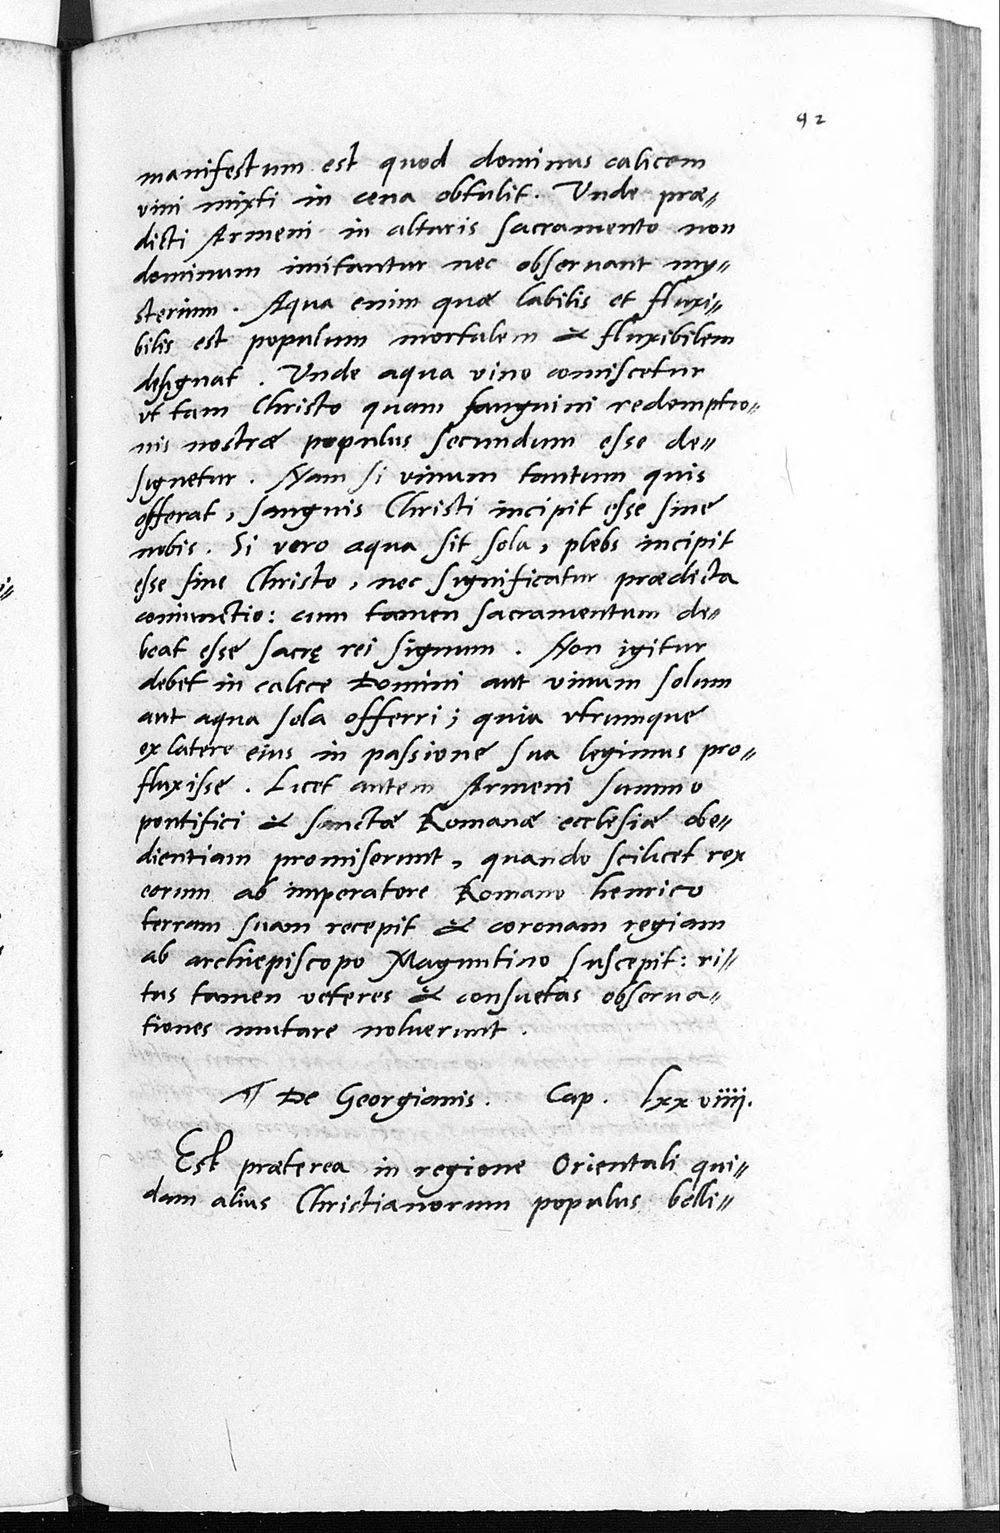 92
manifestum est quod dominus calicem
vini mixti in cena obtulit. Unde præ〃
dicti Armeni in altaris sacramento non
dominum imitantur nec observant my〃
sterium. Aqua enim quæ labilis et fluxi〃
bilis est populum mortalem & fluxibilem
designat. Unde aqua vino comiscetur
vt tam Christo quam sanguini redemptio〃
nis nostræ populus secundum esse de〃
signetur. Nam si vinum tantum quis
offerat, sanguis Christi incipit esse sine
nobis. Si vero aqua sit sola, plebs incipit
esse sine Christo, nec significatur prædicta
coniunctio: cum tamen sacramentum de〃
beat esse sacrę rei signum. Non igitur
debet in calice Domini aut vinum solum
aut aqua sola offerri; quia vtrumque
ex latere eius in passione sua legimus pro〃
fluxisse. Licet autem Armeni summo
pontifici & sanctæ Romanæ ecclesiæ obe〃
dientiam promiserunt, quando scilicet rex
eorum ab imperatore Romano henrico
terram suam recepit & coronam regiam
ab archiepiscopo Maguntino suscepit: ri〃
tus tamen veteres & consuetas observa〃
tiones mutare noluerunt.
¶ De Georgianis. Cap. lxxviiij.
Est præterea in regione Orientali qui〃
dam alius Christianorum populus belli〃